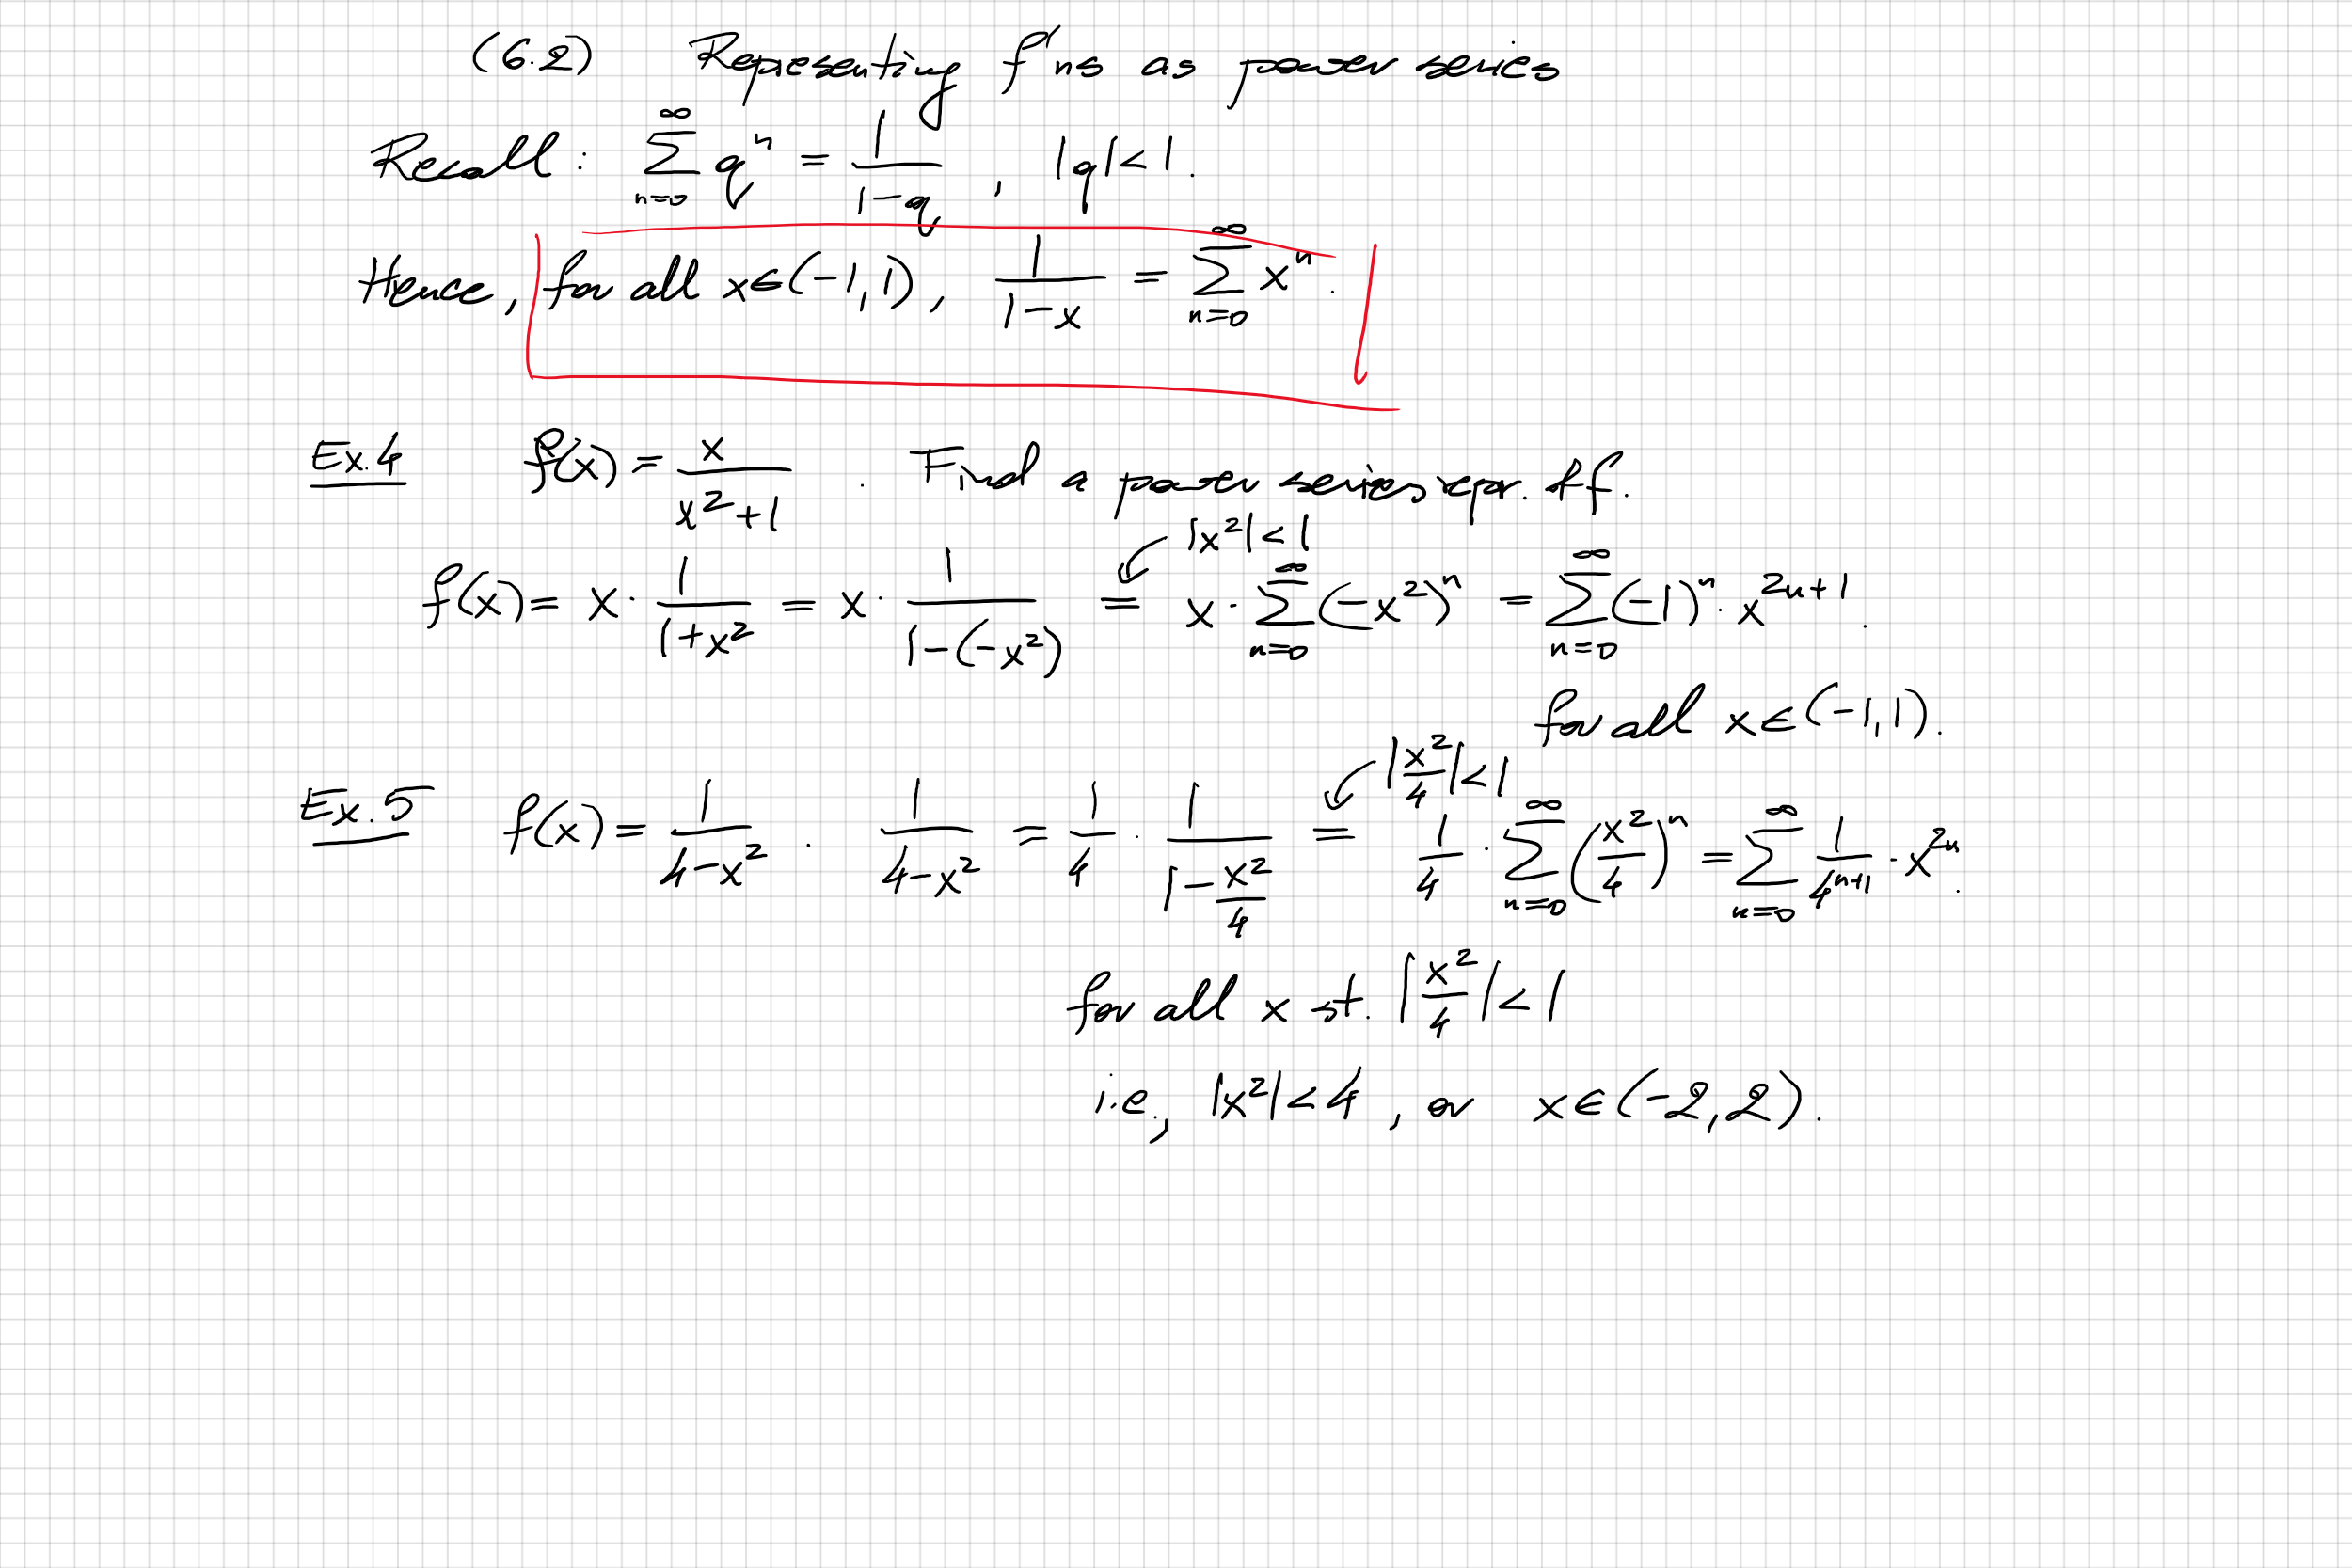 (6.2) Representing f'ns as power series
Recall: \sum_{n=0}^{\infty} q^n = \frac{1}{1-q}, |q|<1.
Hence, for all x∈(-1,1), \frac{1}{1-x} = \sum_{n=0}^{\infty} x^n.
Ex.4 f(x) = \frac{x}{x^2+1}. Find a power series repr. of f.
|x^2|<1
f(x) = x · \frac{1}{1+x^2} = x · \frac{1}{1-(-x^2)} = x · \sum_{n=0}^{\infty} (-x^2)^n = \sum_{n=0}^{\infty} (-1)^n · x^{2n+1}.
for all x∈(-1,1).
|\frac{x^2}{4}|<1
Ex.5 f(x) = \frac{1}{4-x^2}. \frac{1}{4-x^2} = \frac{1}{4} · \frac{1}{1-\frac{x^2}{4}} = \frac{1}{4} · \sum_{n=0}^{\infty} (\frac{x^2}{4})^n = \sum_{n=0}^{\infty} \frac{1}{4^{n+1}} · x^{2n}.
for all x st. |\frac{x^2}{4}|<1
i.e., |x^2|<4, or x∈(-2,2).